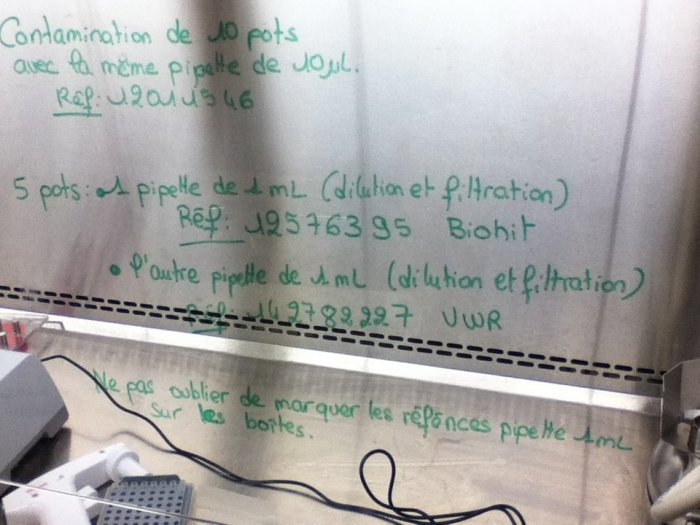 Contamination de 10 pots
avec la même pipette de 10µL.
Réf: 12011546
5 pots: • 1 pipette de 1 mL (dilution et filtration)
Réf: 12576395 Biohit
• l'autre pipette de 1 mL (dilution et filtration)
Réf: 142782227 VWR
Ne pas oublier de marquer les réfénces pipette 1mL
sur les boîtes.